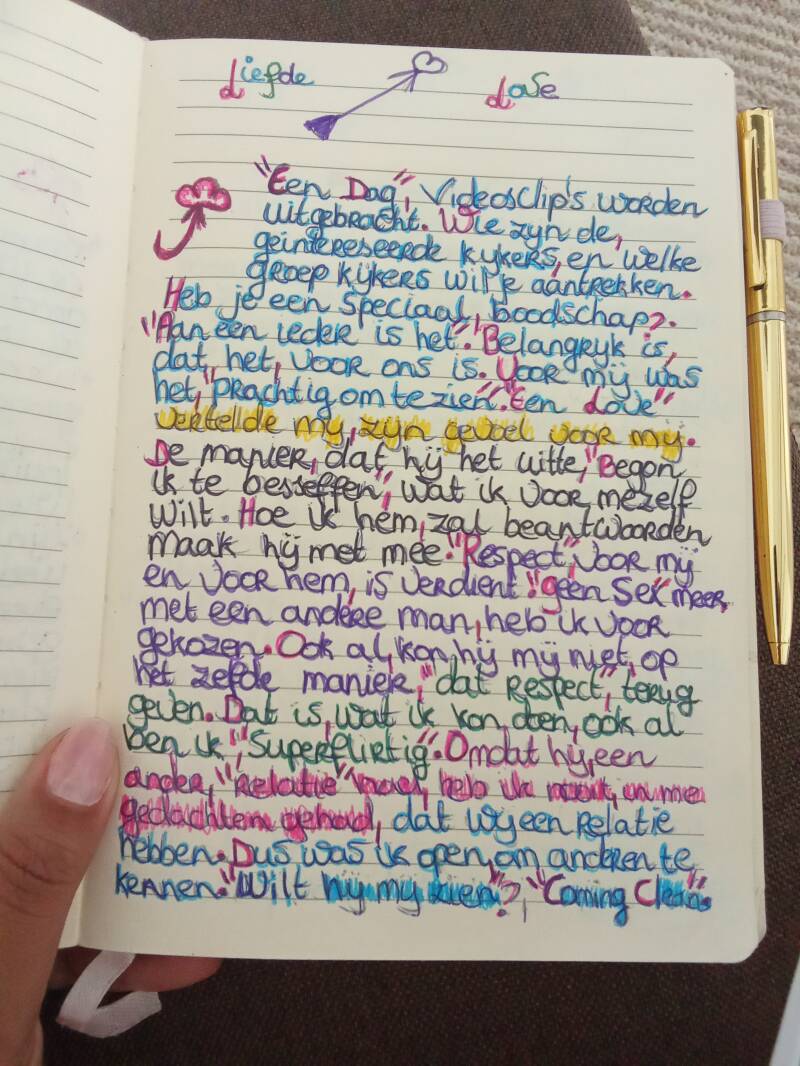 Liefde Love
"Een Dag", Videosclip's worden
uitgebracht. Wie zyn de,
geintereseerde kykers, en welke
groep kijkers wil je aantrekken.
Heb je een speciaal, boodschap?.
"Aan een ieder is het". Belangryk is,
dat, het, voor ons is. Voor mij was
het, "prachtig om te zien". "Een Love"
vertelde my, zijn gevoel voor my.
De manier, dat hij het uitte, "Begon
ik te besseffen", wat ik voor mezelf
wilt. Hoe ik hem, zal beantwoorden
maak hij met mee. "Respect" voor mij
en voor hem, is verdient! "geen sex" meer,
met een andere man, heb ik voor
gekozen. Ook al, kon hij mij niet, op
het zelfde manier, "dat respect", terug
geven. Dat is, wat ik kon doen, ook al
ben ik "Superflirtig". Omdat hy, een
ander, "relatie" had, heb ik nooit, in me
gedachten gehad, dat wy een relatie
hebben. Dus was ik open, om anderen te
kennen. "Wilt hij my zien"?, "Coming Clean".